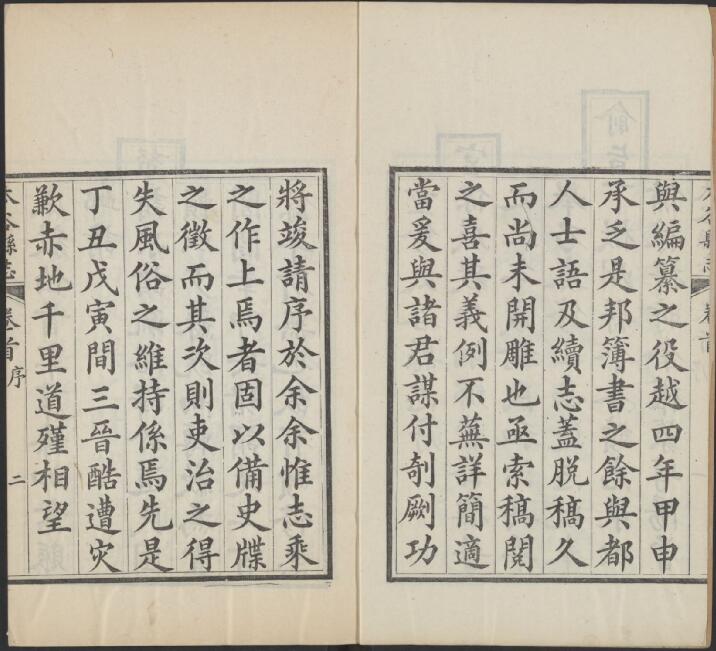 與編纂之役越四年甲申
承乏是邦簿書之餘與都
人士語及續志蓋脫稿久
而尚未開雕也亟索稿閱
之喜其義例不蕪詳簡適
當爰與諸君謀付剞劂功
將竣請序於余余惟志乘
之作上焉者固以備史牒
之徵而其次則吏治之得
失風俗之維持係焉先是
丁丑戊寅間三晉酷遭灾
歉赤地千里道殣相望
谷縣志
卷首
序
二